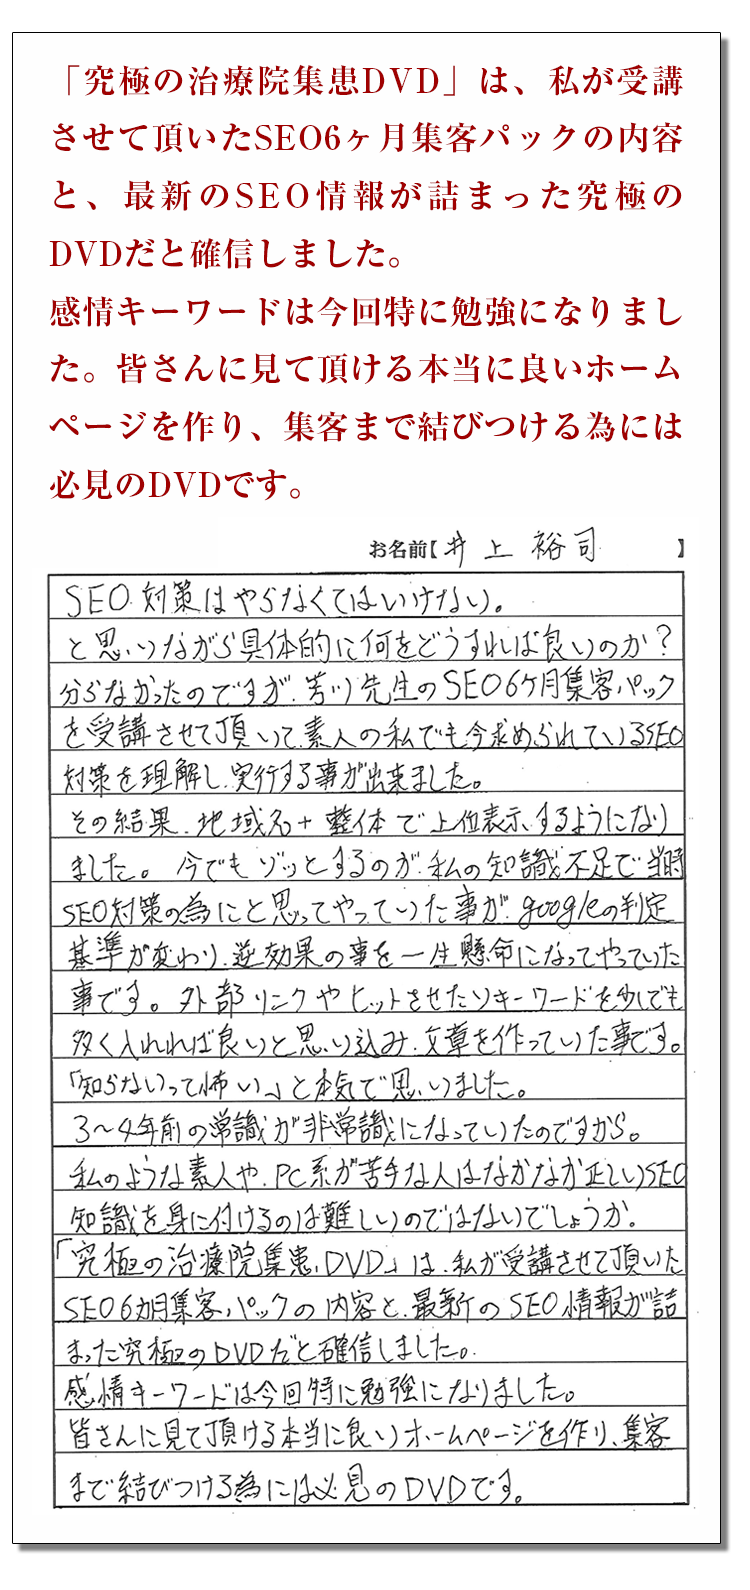 「究極の治療院集患DVD」は、私が受講
させて頂いたSEO6ヶ月集客パックの内容
と、最新のSEO情報が詰まった究極の
DVDだと確信しました。
感情キーワードは今回特に勉強になりまし
た。皆さんに見て頂ける本当に良いホーム
ページを作り、集客まで結びつける為には
必見のDVDです。
お名前【井上 裕司 】
SEO対策はやらなくてはいけない。
と思いながら具体的に何をどうすれば良いのか？
分らなかったのですが、先生のSEO6ヶ月集客パック
を受講させて頂いて、素人の私でも今求められているSEO
対策を理解し、実行する事が出来ました。
その結果、地域名+整体で上位表示するようになり
ました。今でもゾッとするのが、私の知識不足で当時
SEO対策の為にと思ってやっていた事が、googleの判定
基準が変わり、逆効果の事を一生懸命になってやっていた
事です。外部リンクやヒットさせたいキーワードを少しでも
多く入れれば良いと思い込み、文章を作っていた事です。
「知らないって怖い」と本気で思いました。
3〜4年前の常識が非常識になっていたのですから。
私のような素人や、PC系が苦手な人はなかなか正しいSEO
知識を身に付けるのは難しいのではないでしょうか。
「究極の治療院集患DVD」は、私が受講させて頂いた
SEO6カ月集客パックの内容と、最新のSEO情報が詰
まった究極のDVDだと確信しました。
感情キーワードは今回特に勉強になりました。
皆さんに見て頂ける本当に良いホームページを作り、集客
まで結びつける為には必見のDVDです。